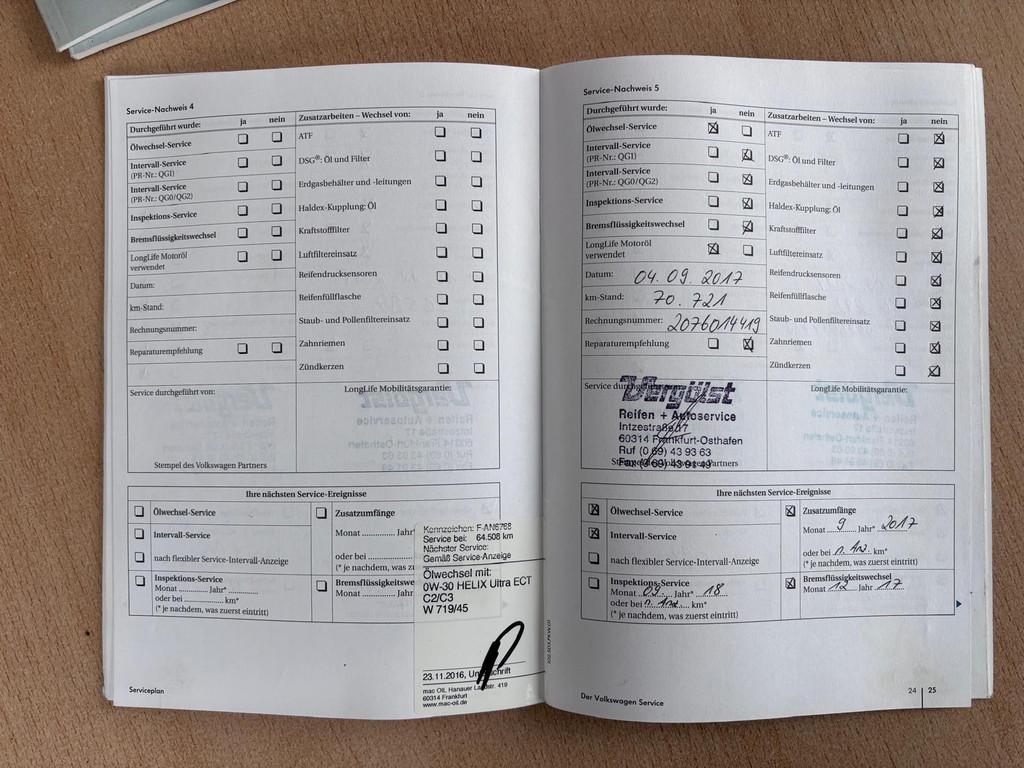 Service-Nachweis 4
Durchgeführt wurde: ja nein
Ölwechsel-Service
Intervall-Service
(PR-Nr.: QG1)
Intervall-Service
(PR-Nr.: QG0/QG2)
Inspektions-Service
Bremsflüssigkeitswechsel
LongLife Motoröl
verwendet
Datum:
km-Stand:
Rechnungsnummer:
Reparaturempfehlung
Zusatzarbeiten – Wechsel von: ja nein
ATF
DSG®: Öl und Filter
Erdgasbehälter und -leitungen
Haldex-Kupplung: Öl
Kraftstofffilter
Luftfiltereinsatz
Reifendrucksensoren
Reifenfüllflasche
Staub- und Pollenfiltereinsatz
Zahnriemen
Zündkerzen
Service durchgeführt von:
Stempel des Volkswagen Partners
LongLife Mobilitätsgarantie:
Ihre nächsten Service-Ereignisse
Ölwechsel-Service
Intervall-Service
nach flexibler Service-Intervall-Anzeige
Inspektions-Service
Monat ............ Jahr* ............
oder bei ............ km*
(* je nachdem, was zuerst eintritt)
Zusatzumfänge
Monat ............ Jahr
oder bei ............
(* je nachdem, was z
Bremsflüssigkeitswe
Monat ............ Jahr
Kennzeichen: F-AN6768
Service bei: 64.508 km
Nächster Service:
Gemäß Service-Anzeige
Ölwechsel mit:
0W-30 HELIX Ultra ECT
C2/C3
W 719/45
23.11.2016, Unterschrift
mac OIL Hanauer Landstr. 419
60314 Frankfurt
www.mac-oil.de
Serviceplan
Service-Nachweis 5
Durchgeführt wurde: ja nein
Ölwechsel-Service
Intervall-Service
(PR-Nr.: QG1)
Intervall-Service
(PR-Nr.: QG0/QG2)
Inspektions-Service
Bremsflüssigkeitswechsel
LongLife Motoröl
verwendet
Datum: 04. 09. 2017
km-Stand: 70. 721
Rechnungsnummer: 2076014419
Reparaturempfehlung
Zusatzarbeiten – Wechsel von: ja nein
ATF
DSG®: Öl und Filter
Erdgasbehälter und -leitungen
Haldex-Kupplung: Öl
Kraftstofffilter
Luftfiltereinsatz
Reifendrucksensoren
Reifenfüllflasche
Staub- und Pollenfiltereinsatz
Zahnriemen
Zündkerzen
Service durchgeführt von:
Vergölst
Reifen + Autoservice
Intzestraße 17
60314 Frankfurt-Osthafen
Ruf (0 69) 43 93 63
Fax (0 69) 43 91 49
Stempel des Volkswagen Partners
LongLife Mobilitätsgarantie:
Ihre nächsten Service-Ereignisse
Ölwechsel-Service
Intervall-Service
nach flexibler Service-Intervall-Anzeige
Inspektions-Service
Monat 09 Jahr* 18
oder bei n. Anz. km*
(* je nachdem, was zuerst eintritt)
Zusatzumfänge
Monat 9 Jahr* 2017
oder bei n. Anz. km*
(* je nachdem, was zuerst eintritt)
Bremsflüssigkeitswechsel
Monat 12 Jahr 17
Der Volkswagen Service
24 | 25